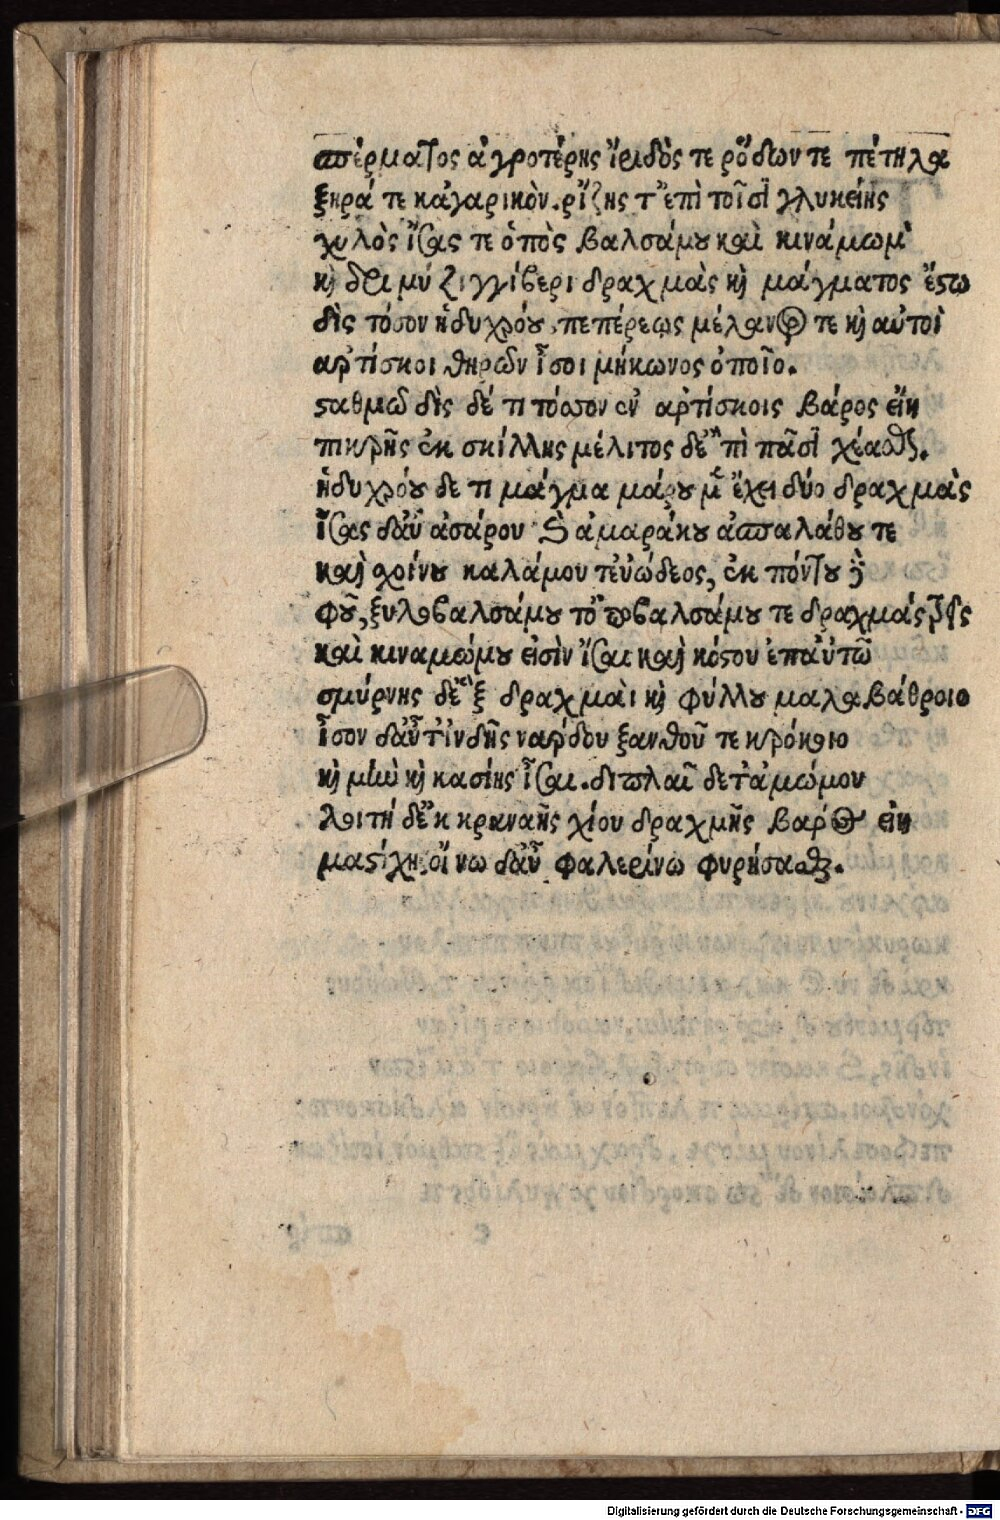 σπέρματος ἀγροτέρης ἴριδός τε ῥόδων τε πέτηλα
ξηρά τε κἀγαρικὸν. ῥίζης τ' ἐπὶ τοῖσι γλυκείης
χυλὸς ἴσας τε ὀπὸς βαλσάμου καὶ κινάμωμ'
καὶ δριμὺ ζιγγίβερι δραχμὰς καὶ μάγματος ἔστω
δὶς τόσον ἡδυχρόου, πεπέρεως μέλανός τε καὶ αὐτοὶ
ἀρτίσκοι θηρῶν ἶσοι μήκωνος ὀποῖο.
σταθμῷ δὶς δέ τι τόσσον ἐν ἀρτίσκοις βάρος εἴη
πικρῆς ἐκ σκίλλης μέλιτος δ' ἐπὶ πᾶσι χέασθαι.
ἡδυχρόου δέ τι μάγμα μάρου μὲν ἔχει δύο δραχμὰς
ἴσας δ' αὖ ἀσάρου καὶ ἀμαράκου ἀσπαλάθου τε
καὶ χοίνου καλάμου τ' εὐώδεος, ἐκ πόντου
φοῦ, ξυλοβαλσάμου τ' ὀποβαλσάμου τε δραχμὰς τρεῖς
καὶ κιναμώμου εἰσὶν ἴσαι καὶ κόστου ἐπ' αὐτῷ
σμύρνης δὲ ἓξ δραχμαὶ καὶ φύλλου μαλαβάθροιο
ἶσον δ' αὖτ' ἰνδῆς νάρδου ξανθοῦ τε κρόκοιο
καὶ μὴν καὶ κασίης ἶσαι. διπλαῖ δέ τ' ἀμώμου
λοιτὴ δ' ἐκ κραναῆς χίου δραχμῆς βάρος εἴη
μαστίχη, οἴνω δ' αὖ φαλερίνω φυρήσασθαι.
Digitalisierung gefördert durch die Deutsche Forschungsgemeinschaft - DFG